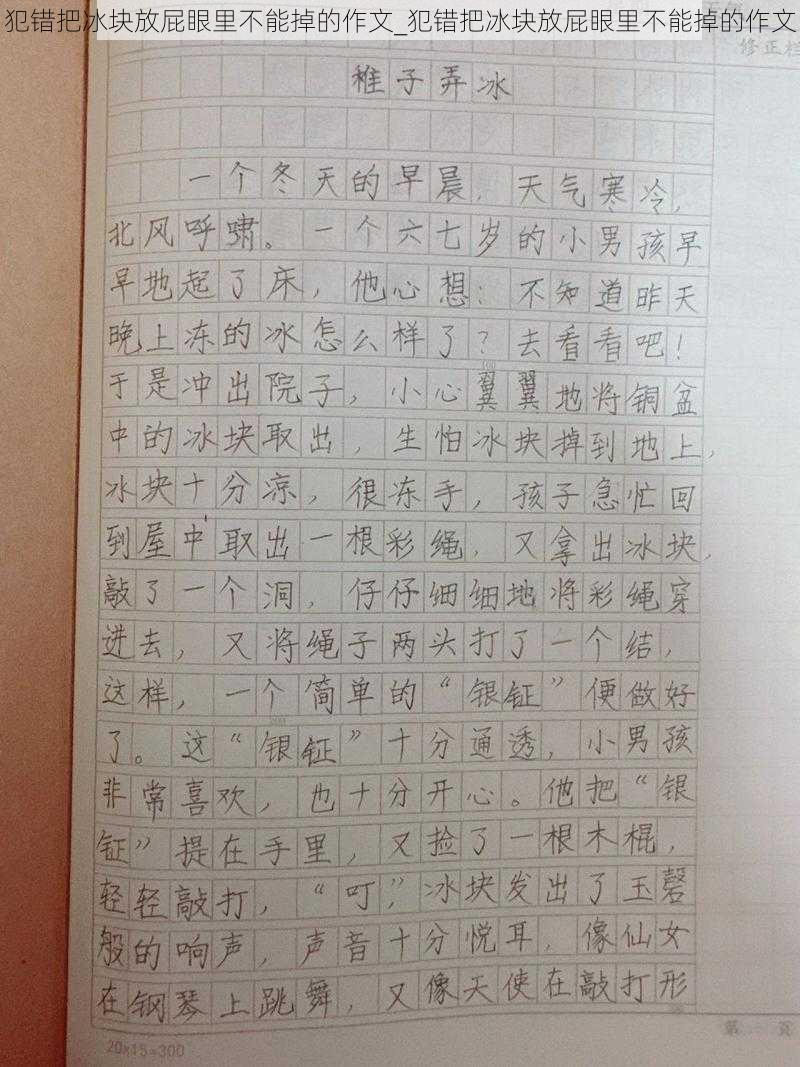 犯错把冰块放屁眼里不能掉的作文_犯错把冰块放屁眼里不能掉的作文
修正栏
稚子弄冰
一个冬天的早晨，天气寒冷，
北风呼啸。一个六七岁的小男孩早
早地起了床，他心想：不知道昨天
晚上冻的冰怎么样了？去看看吧！
于是冲出院子，小心翼翼地将铜盆
中的冰块取出，生怕冰块掉到地上，
冰块十分凉，很冻手，孩子急忙回
到屋中取出一根彩绳，又拿出冰块，
敲了一个洞，仔仔细细地将彩绳穿
进去，又将绳子两头打了一个结，
这样，一个简单的“银钲”便做好
了。这“银钲”十分通透，小男孩
非常喜欢，也十分开心。他把“银
钲”提在手里，又捡了一根木棍，
轻轻敲打，“叮”，冰块发出了玉磬
般的响声，声音十分悦耳，像仙女
在钢琴上跳舞，又像天使在敲打形
第 页
20×15=300